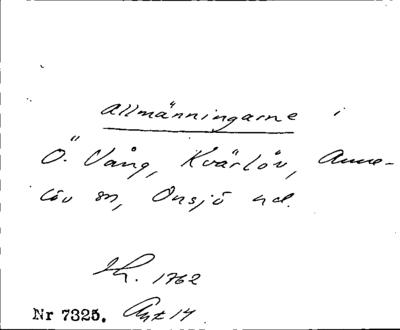 allmänningarne i
Ö. Vång, Kvärlöv, Anne-
löv sn, Onsjö hd.
Kt. 1762
Nr 7325. Akt 14